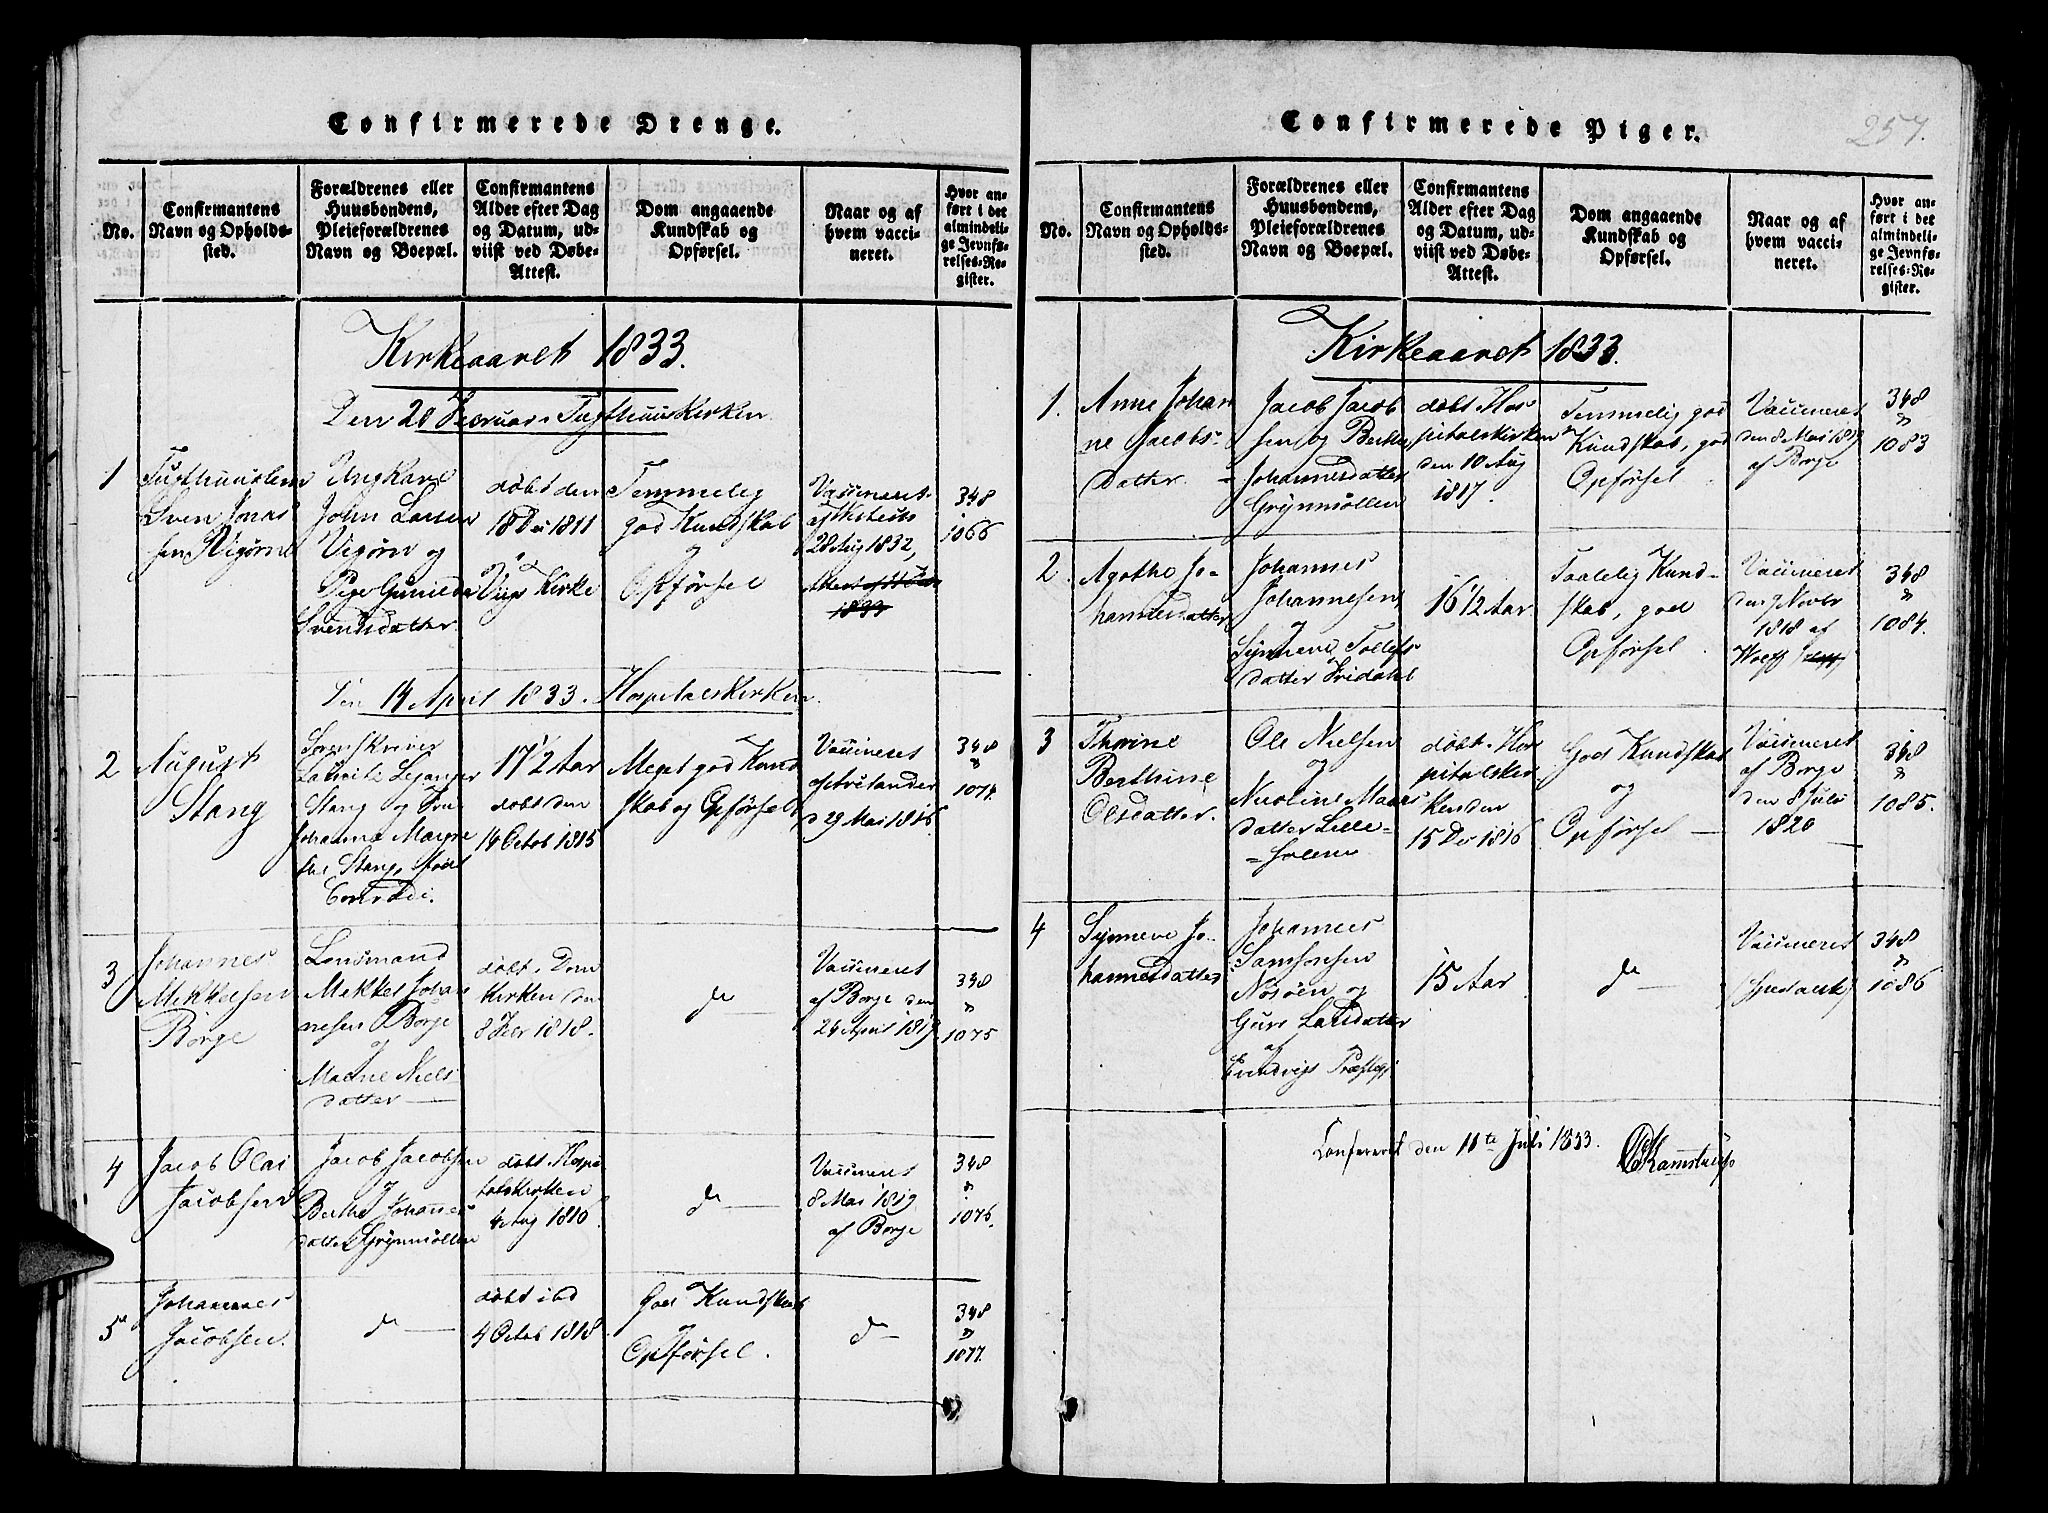 Confirmerede Drenge.
No.
Confirmantens
Navn og Opholds-
sted.
Forældrenes eller
Huusbondens,
Pleieforældrenes
Navn og Boepæl.
Confirmantens
Alder efter Dag
og Datum, ud-
viist ved Døbe-
Attest.
Dom angaaende
Kundskab og
Opførsel.
Naar og af
hvem vacci-
neret.
Hvor an-
ført i det
almindeli-
ge Jevnfø-
relses-Re-
gister.
Kirkeaaret 1833.
Den 20 Februar i Tugthuuskirken
1
Sven Jonas
sen Vigørne
Ungkarl
John Larsen
Vigørn og
Pige Gunilda
Svendsdatter.
døbt den
18 De 1811
i
Viigs Kirke
Temmelig
god Kundskab
og
Opførsel
Vaccineret
28 Aug 1832,
1833
348
1066
Den 14 April 1833. Hospitalskirken.
2
August
Stang
Sorenskriver
Lauritz Lejanger
Stang og Fru
Johanna Margre
the Stang, født
Conradi.
17 1/2 Aar
døbt den
14 Octob 1815
Meget god Kund
skab og Opførsel
Vaccineret
d 29 Mai 1816
348
"
1074.
3
Johannes
Mekkelsen
Borge
Lensmand
Mekkel Johan
nesen Borge
og
Magne Niels
datter
døbt i Dom
kirken den
8 Febr 1818.
do
Vaccineret
af Borge den
24 April 1819
348
"
1075
4
Jacob Olai
Jacobsen
Jacob Jacobsen
og
Berthe Johannes
datter Grynmöllen
døbt i Hospi
talskirken
4 Aug 1816.
do
Vaccineret
8 Mai 1819
af Borge
348
"
1076.
5
Johannes
Jacobsen.
do
døbt ibd
4 Octob 1818
God Kundskab
og
Opførsel.
do
348
"
1077.
Confirmerede Piger.
257.
No.
Confirmantens
Navn og Opholds-
sted.
Forældrenes eller
Huusbondens,
Pleieforældrenes
Navn og Boepæl.
Confirmantens
Alder efter Dag
og Datum, ud-
viist ved Døbe-
Attest.
Dom angaaende
Kundskab og
Opførsel.
Naar og af
hvem vacci-
neret.
Hvor an-
ført i det
almindeli-
ge Jevnfø-
relses-Re-
gister.
Kirkeaaret 1833.
1.
Anne Johan
ne Jacobs-
datter.
Jacob Jacob
sen og Berthe
Johannesdatter
Grynmöllen
døbt i Hos
pitalskirken
den 10 Aug
1817.
Temmelig god
Kundskab, god
Opførsel
Vaccineret
den 8 Mai 1819
af Borge
348
"
1083
2.
Agathe Jo-
hannesdatter
Johannes
Johannesen
og
Synneve Tollefs
datter Fridahl
16 1/2 Aar
Taalelig Kund-
skab, god
Opførsel
Vaccineret
den 7 Novbr
1818 af
Wolff
348
"
1084.
3
Thorine
Berthine
Olsdatter.
Ole Nielsen
og
Nicoline Mads
datter Lille-
døbt i Hos
pitalskir
ken den
15 De 1816
God Kundskab
og
Opførsel
Vaccineret
af Borge
den 8 Juli
1820
348
"
1085.
4
Synneve Jo-
hannesdatter
Johannes
Samsonsen
Nosöen og
Guri Larsdatter
af
Evindvigs Præstegj
15 Aar
do
Vaccineret
348
"
1086
Confereret den 11te Juli 1833.